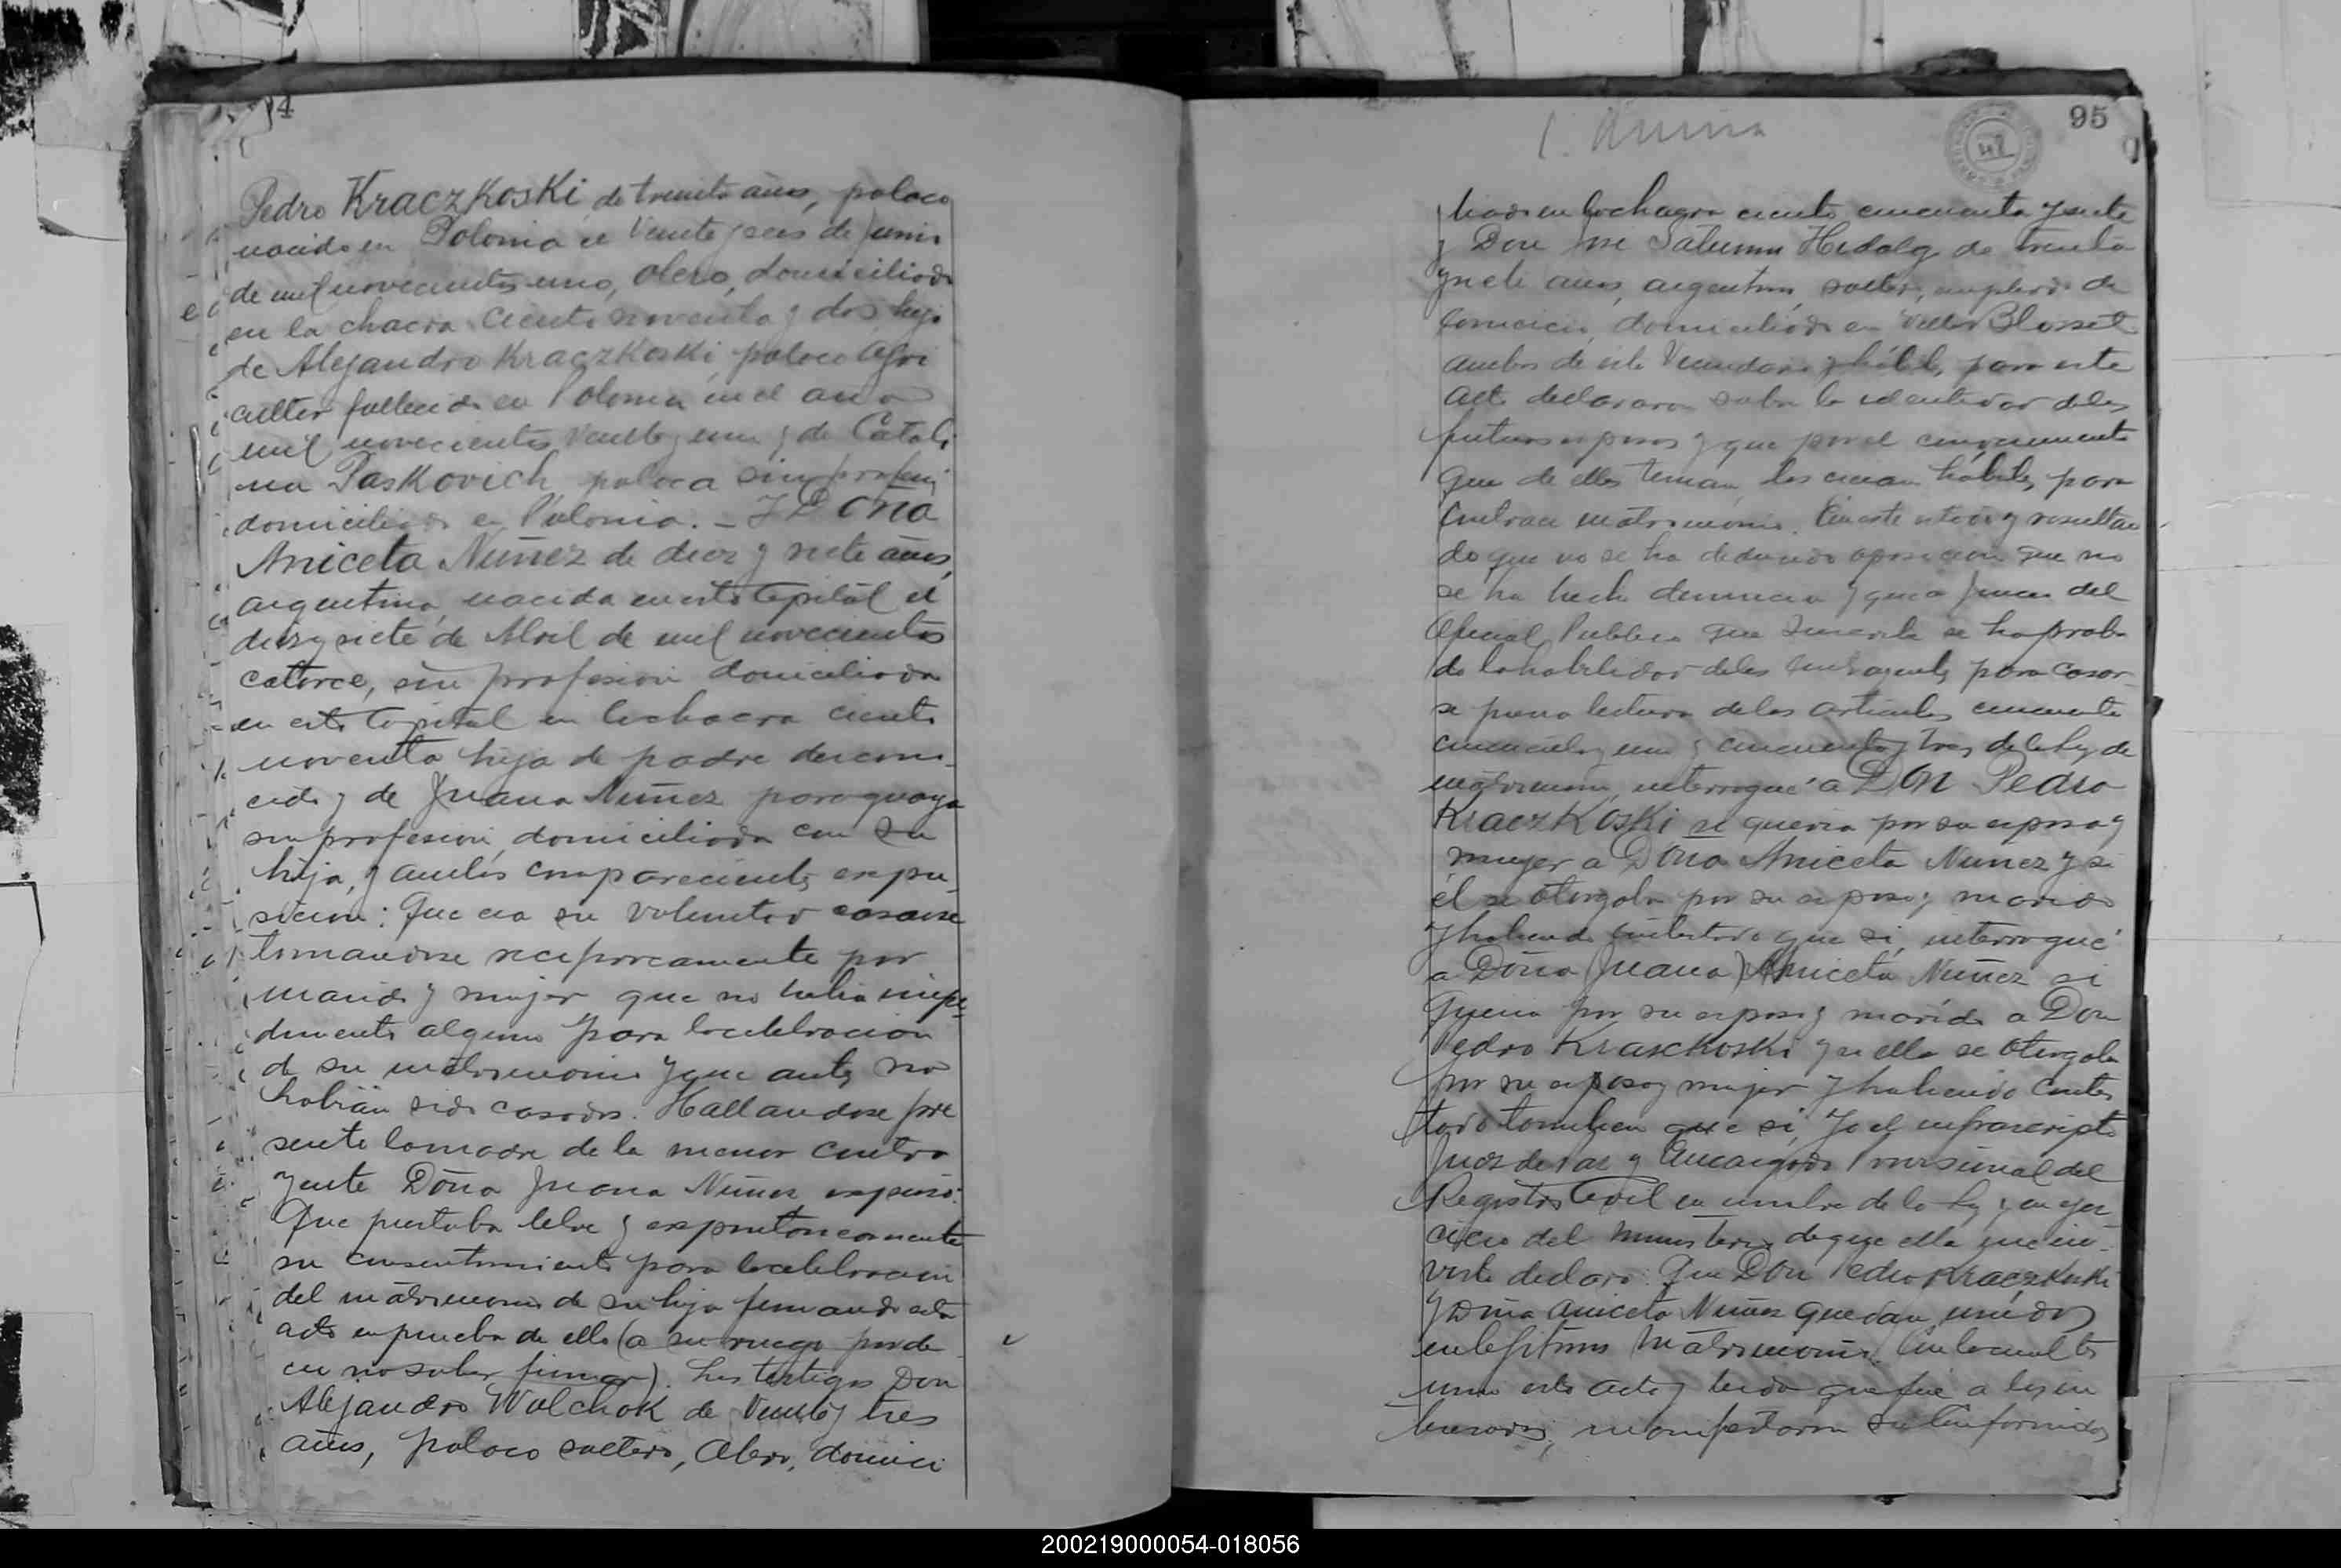 94
Pedro Kraczkoski, de treinta años, polaco
nacido en Polonia el Veinte y seis de Junio
de mil novecientos uno, olero, domiciliado
en la chacra Ciento noventa y dos hijo
de Alejandro Kraczkoski, polaco agri
cultor fallecido en Polonia en el año
mil novecientos veinte y uno y de Catali
na Paskovich, polaca sin profesión
domiciliada en Polonia. _ Y DOña
Aniceta Núñez de diez y siete años,
argentina, nacida en esta Capital el
diez y siete de Abril de mil novecientos
catorce, sin profesion domiciliada
en esta Capital en la chacra ciento
noventa hija de padre descono_
cido y de Juana Nuñez paraguaya
sin profesion, domiciliada con su
hija, y ambos comparecientes expu_
sieron: Que era su voluntad casarse
tomandose reciprocamente por
marido y mujer, que no habia impe_
dimento alguno para la celebracion
de su matrimonio y que antes no
habian sido casados. Hallandose pre
sente la madre de la menor contra
yente Doña Juana Nuñez expuso:
Que prestaba libre y espontaneamente
su consentimiento para la celebracion
del matrimonio de su hija firmando esta
acta en prueba de ello (a su ruego por de_
cir no saber firmar). Los testigos Don
Alejandro Walchok de Veinte y tres
años, polaco soltero, Olero, domici
95
liado en la chacra ciento cincuenta y siete
y Don José Saturnino Hidalgo de treinta
y siete años, argentino, soltero, empleado de
Comercio, domiciliado en Blosset
ambos de este Vecindario y hábiles, para este
acto declararon sobre la identidad de los
futuros esposos y que por el conocimiento
que de ellos tenian, los creian hábiles, para
contraer matrimonio. En este estado y resultan
do que no se ha deducido oposicion que no
se ha hecho denuncia y que a Juicio del
Oficial Publico que Suscribe se ha proba
do la habilidad de los contrayentes para casar_
se previa lectura de los articulos cincuenta
cincuenta y uno y cincuenta y tres de la Ley de
matrimonio, interrogué a DON Pedro
KraczKoski si queria por su esposa y
mujer a Doña Aniceta Nunez y si
él se otorgaba por su esposo y marido
y habiendo contestado que si, interrogué
a Doña (Juana) Aniceta Nuñez si
queria por su esposo y marido a Don
Pedro Kraschoski y si ella se otorgaba
por su esposa y mujer y habiendo contes
tado tambien que si, Yo el infrascripto
Juez de Paz y Encargado Provisional del
Registro Civil en nombre de la Ley y en ejer_
cicio del ministerio de que ella me in_
viste declaro: Que Don Pedro Kraczkoski
y Doña Aniceta Nuñez quedan unidos
en legitimo matrimonio. Con lo cual ter
mino esta acta y leida que fue a los in
teresados, manifestaron su conformidad
200219000054-018056